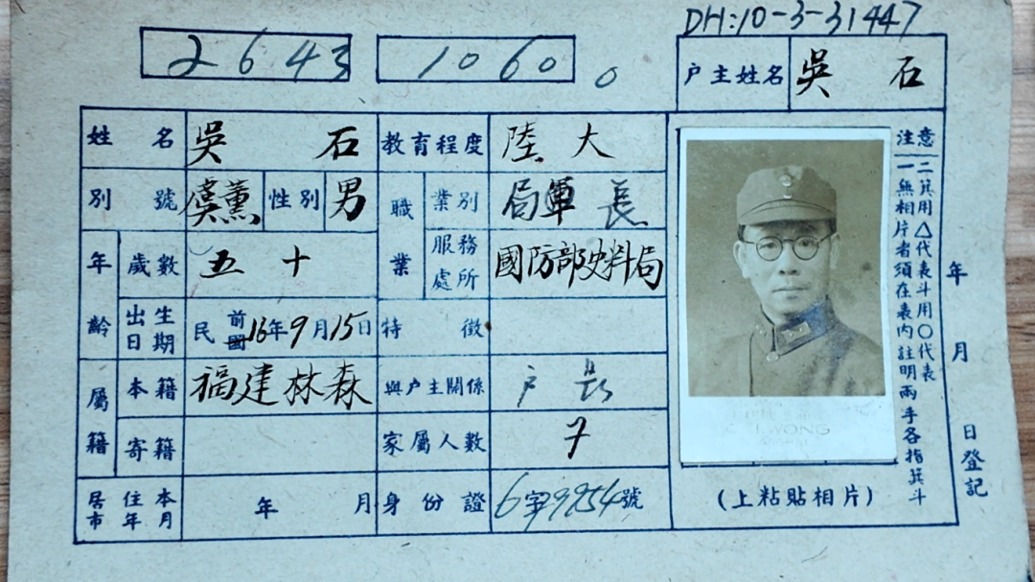 DH:10-3-31447
2643 1060 0
户主姓名 吳石
姓名 吳石 教育程度 陸大
別號 虞薰 性別 男 職業 業別 局軍長
年齡 歲數 五十 服務處所 國防部史料局
出生日期 民前國16年9月15日 特徵
屬籍 本籍 福建林森 與户主關係 户長
寄籍 家屬人數 7
居住本市年月 年 月 身份證 6字9954號
(上粘貼相片)
注意
一無相片者須在表內註明兩手各指箕斗
二箕用△代表斗用○代表
年 月 日登記
WONG